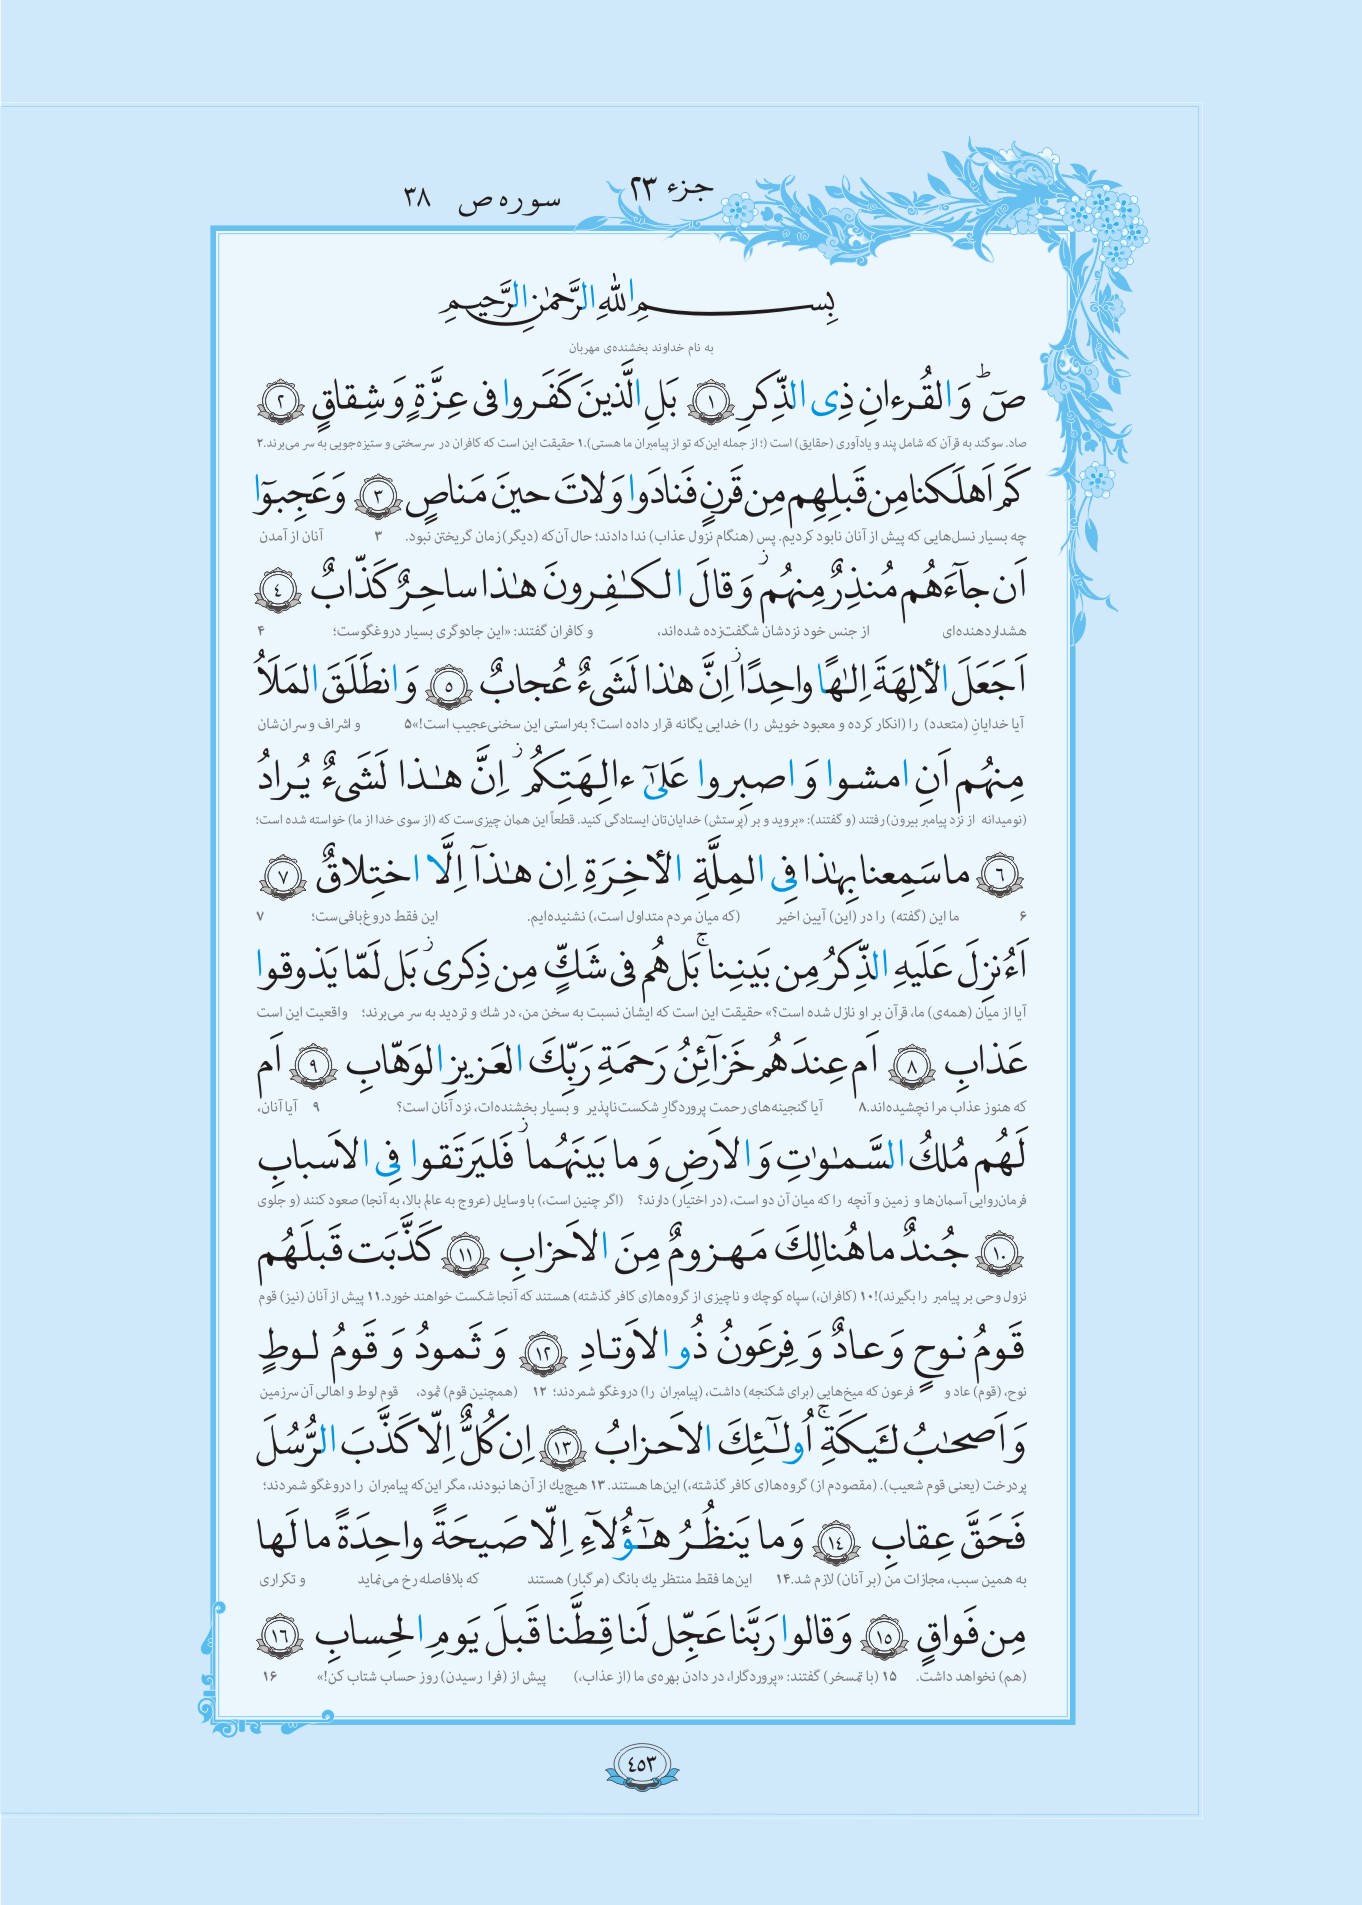 جزء ٢٣
سوره ص ٣٨
بِسمِ اللّٰهِ الرَّحمٰنِ الرَّحيمِ
به نام خداوند بخشنده‌ی مهربان
صٓ ۚ وَالقُرءانِ ذِی الذِّکرِ ١ بَلِ الَّذینَ کَفَروا فی عِزَّةٍ وَ شِقاقٍ ٢
صاد. سوگند به قرآن که شامل پند و یادآوری (حقایق) است (؛ از جمله این‌که تو از پیامبران ما هستی).۱ حقیقت این است که کافران در سرسختی و ستیزه‌جویی به سر می‌برند.۲
کَم اَهلَکنا مِن قَبلِهِم مِن قَرنٍ فَنادَوا وَلاتَ حینَ مَناصٍ ٣ وَ عَجِبوٓا
چه بسیار نسل‌هایی که پیش از آنان نابود کردیم. پس (هنگام نزول عذاب) ندا دادند؛ حال آن‌که (دیگر) زمان گریختن نبود. ۳ آنان از آمدن
اَن جآءَهُم مُنذِرٌ مِنهُم ۖ وَ قالَ الکٰفِرونَ هٰذا ساحِرٌ کَذّابٌ ٤
هشداردهنده‌ای از جنس خود نزدشان شگفت‌زده شده‌اند، و کافران گفتند: «این جادوگری بسیار دروغگوست؛ ۴
اَجَعَلَ الأٰلِهَةَ اِلٰهًا واحِدًا ۖ اِنَّ هٰذا لَشَیءٌ عُجابٌ ٥ وَ انطَلَقَ المَلَأُ
آیا خدایانِ (متعدد) را (انکار کرده و معبود خویش را) خدایی یگانه قرار داده است؟ به‌راستی این سخنی‌عجیب است!»۵ و اشراف و سران‌شان
مِنهُم اَنِ امشوا وَ اصبِروا عَلیٰٓ ءالِهَتِکُم ۖ اِنَّ هٰذا لَشَیءٌ یُرادُ
(نومیدانه از نزد پیامبر بیرون) رفتند (و گفتند): «بروید و بر (پرستش) خدایان‌تان ایستادگی کنید. قطعاً این همان چیزی‌ست که (از سوی خدا از ما) خواسته شده است؛
٦ ما سَمِعنا بِهٰذا فِی المِلَّةِ الأٰخِرَةِ اِن هٰذآ اِلَّا اختِلاقٌ ٧
۶ ما این (گفته) را در (این) آیین اخیر (که میان مردم متداول است،) نشنیده‌ایم. این فقط دروغ‌بافی‌ست؛ ۷
اَءُنزِلَ عَلَیهِ الذِّکرُ مِن بَینِنا ۚ بَل هُم فی شَكٍّ مِن ذِکری ۖ بَل لَمّا یَذوقوا
آیا از میان (همه‌ی) ما، قرآن بر او نازل شده است؟» حقیقت این است که ایشان نسبت به سخن من، در شك و تردید به سر می‌برند؛ واقعیت این است
عَذابِ ٨ اَم عِندَهُم خَزآئِنُ رَحمَةِ رَبِّكَ العَزیزِ الوَهّابِ ٩ اَم
که هنوز عذاب مرا نچشیده‌اند.۸ آیا گنجینه‌های رحمت پروردگارِ شکست‌ناپذیر و بسیار بخشنده‌ات، نزد آنان است؟ ۹ آیا آنان،
لَهُم مُلكُ السَّمٰوٰتِ وَ الاَرضِ وَ ما بَینَهُما ۖ فَلیَرتَقوا فِی الاَسبابِ
فرمان‌روایی آسمان‌ها و زمین و آنچه را که میان آن دو است، (در اختیار) دارند؟ (اگر چنین است،) با وسایل (عروج به عالم بالا، به آنجا) صعود کنند (و جلوی
١٠ جُندٌ ما هُنالِكَ مَهزومٌ مِنَ الاَحزابِ ١١ کَذَّبَت قَبلَهُم
نزول وحی بر پیامبر را بگیرند)!۱۰ (کافران،) سپاه کوچك و ناچیزی از گروه‌ها(ی کافر گذشته) هستند که آنجا شکست خواهند خورد.۱۱ پیش از آنان (نیز) قوم
قَومُ نوحٍ وَ عادٌ وَ فِرعَونُ ذُو الاَوتادِ ١٢ وَ ثَمودُ وَ قَومُ لوطٍ
نوح، (قوم) عاد و فرعون که میخ‌هایی (برای شکنجه) داشت، (پیامبران را) دروغگو شمردند؛ ۱۲ (همچنین قوم) ثمود، قوم لوط و اهالی آن سرزمین
وَ اَصحٰبُ لئَیکَةِ ۚ اُولٰٓئِكَ الاَحزابُ ١٣ اِن کُلٌّ اِلّا کَذَّبَ الرُّسُلَ
پردرخت (یعنی قوم شعیب). (مقصودم از) گروه‌ها(ی کافر گذشته،) این‌ها هستند.۱۳ هیچ‌یك از آن‌ها نبودند، مگر این‌که پیامبران را دروغگو شمردند؛
فَحَقَّ عِقابِ ١٤ وَ ما یَنظُرُ هٰٓؤُلآءِ اِلّا صَیحَةً واحِدَةً ما لَها
به همین سبب، مجازات من (بر آنان) لازم شد.۱۴ این‌ها فقط منتظر یك بانگ (مرگبار) هستند که بلافاصله رخ می‌نماید و تکراری
مِن فَواقٍ ١٥ وَ قالوا رَبَّنا عَجِّل لَنا قِطَّنا قَبلَ یَومِ الحِسابِ ١٦
(هم) نخواهد داشت. ۱۵ (با تمسخر) گفتند: «پروردگارا، در دادن بهره‌ی ما (از عذاب،) پیش از (فرا رسیدن) روز حساب شتاب کن!» ۱۶
٤٥٣